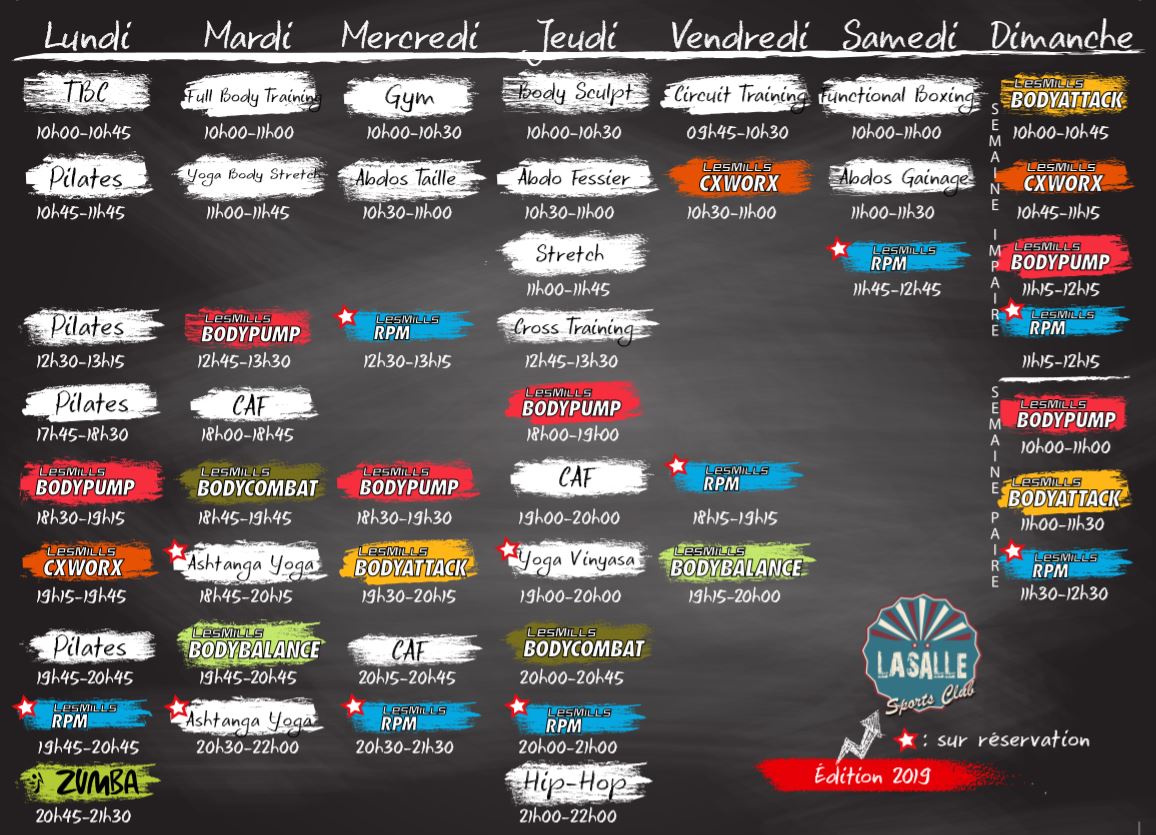 Lundi
TBC
10h00-10h45
Pilates
10h45-11h45
Pilates
12h30-13h15
Pilates
17h45-18h30
LesMills
BODYPUMP
18h30-19h15
LesMills
CXWORX
19h15-19h45
Pilates
19h45-20h45
LesMills
RPM
19h45-20h45
ZUMBA
20h45-21h30
Mardi
Full Body Training
10h00-11h00
Yoga Body Stretch
11h00-11h45
LesMills
BODYPUMP
12h45-13h30
CAF
18h00-18h45
LesMills
BODYCOMBAT
18h45-19h45
Ashtanga Yoga
18h45-20h15
LesMills
BODYBALANCE
19h45-20h45
Ashtanga Yoga
20h30-22h00
Mercredi
Gym
10h00-10h30
Abdos Taille
10h30-11h00
LesMills
RPM
12h30-13h15
LesMills
BODYPUMP
18h30-19h30
LesMills
BODYATTACK
19h30-20h15
CAF
20h15-20h45
LesMills
RPM
20h30-21h30
Jeudi
Body Sculpt
10h00-10h30
Abdo Fessier
10h30-11h00
Stretch
11h00-11h45
Cross Training
12h45-13h30
LesMills
BODYPUMP
18h00-19h00
CAF
19h00-20h00
Yoga Vinyasa
19h00-20h00
LesMills
BODYCOMBAT
20h00-20h45
LesMills
RPM
20h00-21h00
Hip-Hop
21h00-22h00
Vendredi
Circuit Training
09h45-10h30
LesMills
CXWORX
10h30-11h00
LesMills
RPM
18h15-19h15
LesMills
BODYBALANCE
19h15-20h00
Samedi
Functional Boxing
10h00-11h00
Abdos Gainage
11h00-11h30
LesMills
RPM
11h45-12h45
Dimanche
SEMAINE IMPAIRE
LesMills
BODYATTACK
10h00-10h45
LesMills
CXWORX
10h45-11h15
LesMills
BODYPUMP
11h15-12h15
LesMills
RPM
11h15-12h15
SEMAINE PAIRE
LesMills
BODYPUMP
10h00-11h00
LesMills
BODYATTACK
11h00-11h30
LesMills
RPM
11h30-12h30
LASALLE
Sports Club
: sur réservation
Édition 2019